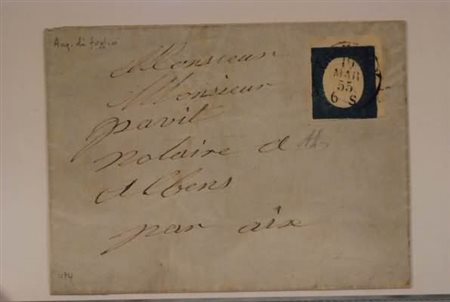 Ang. di foglio
Monsieur
Monsieur
pavit
notaire d
Albens
par aix
19
MAR
55
6 S